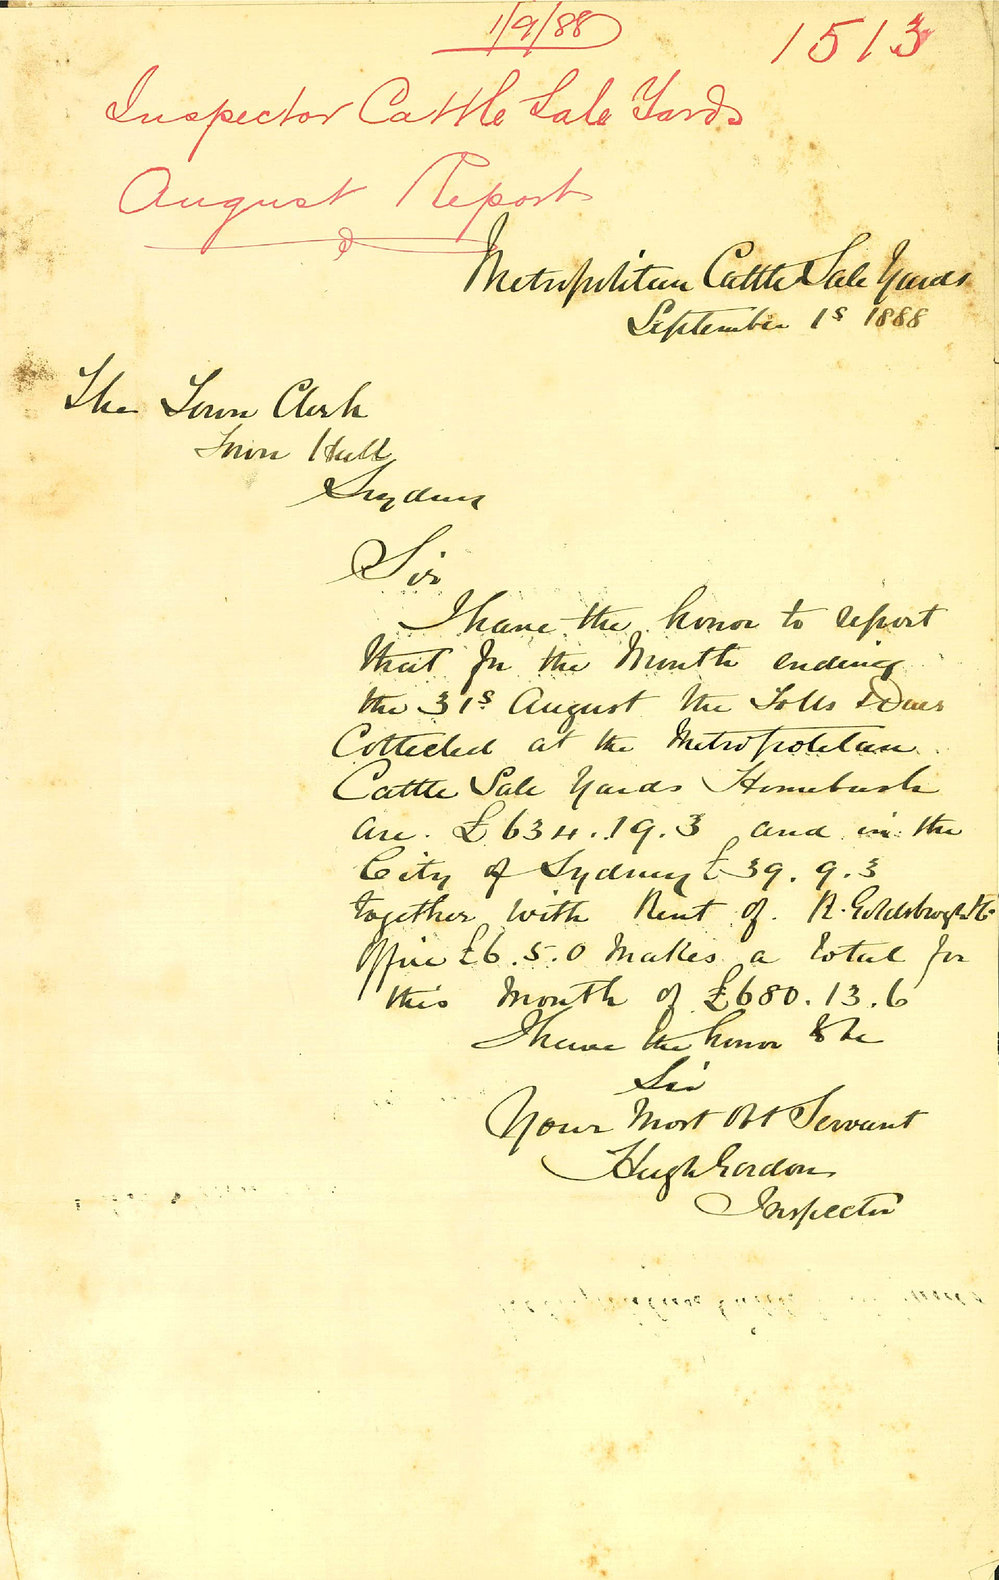 1/9/88
1513
Inspector Cattle Sale Yards
August Report
Metropolitan Cattle Sale Yards
September 1s 1888
The Town Clerk
Town Hall
Sydney
Sir
I have the honor to report
that for the Month ending
the 31s August the Tolls & Dues
Collected at the Metropolitan
Cattle Sale Yards Homebush
are. £634.19.3 and in the
City of Sydney £39.9.3
together with Rent of. R. Goldsbrough &Co
Office £6.5.0 Makes a total for
this Month of £680.13.6
I have the honor to be
Sir
Your Most Obt Servant
Hugh Gordon
Inspector